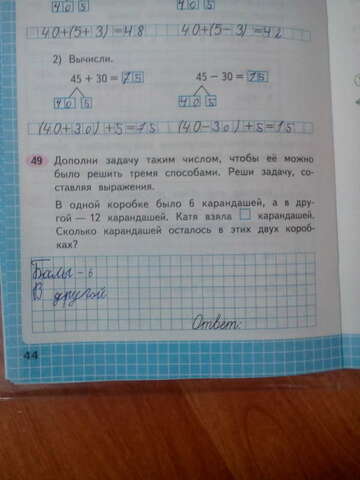 4 0 5
40+(5+3)=48 40+(5-3)=42
2) Вычисли.
45 + 30 = 7 5 45 − 30 = 1 5
4 0 5 4 0 5
(40+30)+5=75 (40-30)+5=15
49 Дополни задачу таким числом, чтобы её можно
было решить тремя способами. Реши задачу, со-
ставляя выражения.
В одной коробке было 6 карандашей, а в дру-
гой — 12 карандашей. Катя взяла карандашей.
Сколько карандашей осталось в этих двух короб-
ках?
- 6
В другой
Ответ:
44